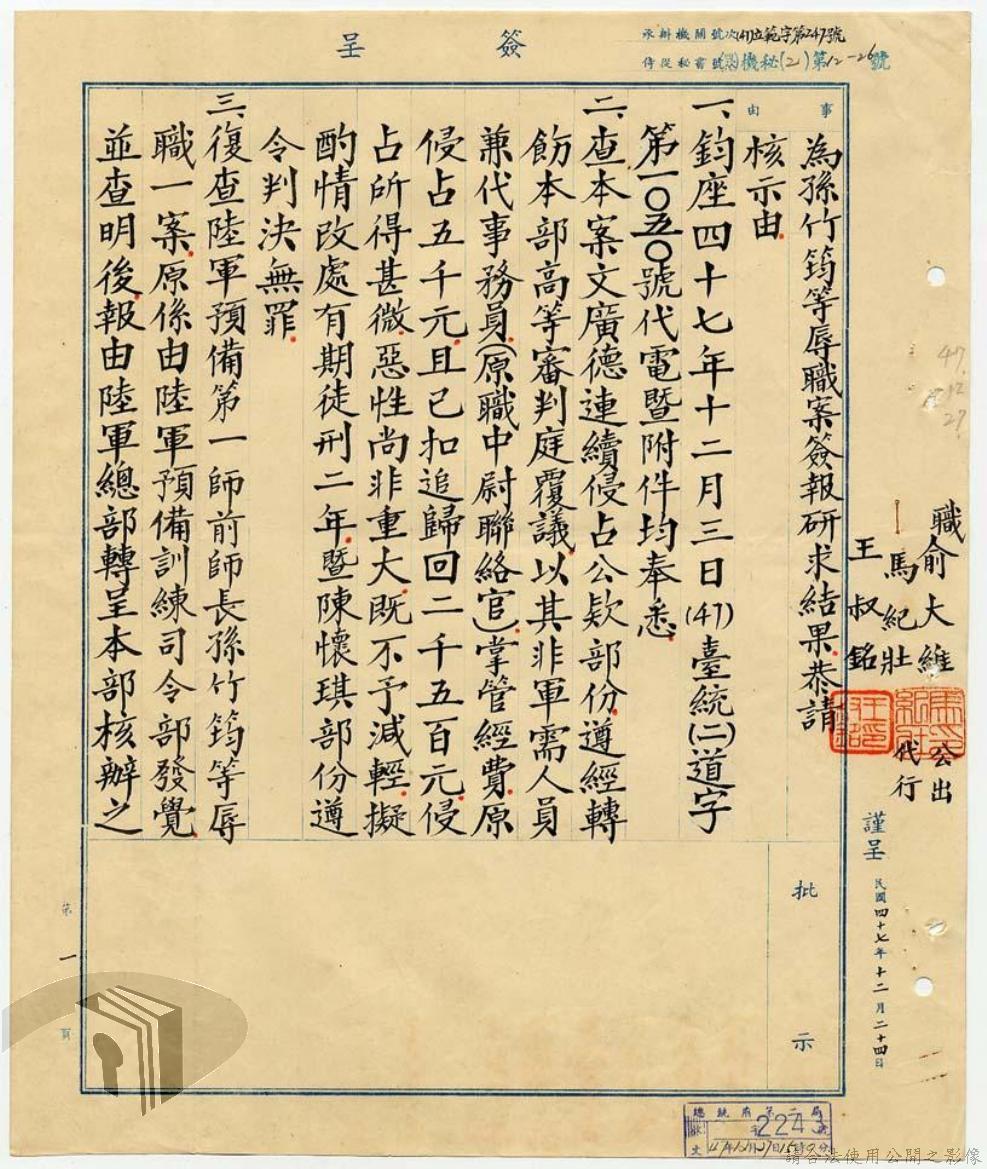 簽呈
承辦機關號次(47)立範字第247號
侍從秘書號 機秘(2)第12-26號
職俞大維 公出
馬紀壯 代行
王叔銘
謹呈
民國四十七年十二月二十四日
事由
為孫竹筠等辱職案簽報研求結果恭請
核示由
一、鈞座四十七年十二月三日(47)臺統(二)道字
第一〇五〇號代電暨附件均奉悉
二、查本案文廣德連續侵占公款部份遵經轉
飭本部高等審判庭覆議以其非軍需人員
兼代事務員(原職中尉聯絡官)掌管經費原
侵占五千元且已扣追歸回二千五百元侵
占所得甚微惡性尚非重大既不予減輕擬
酌情改處有期徒刑二年暨陳懷琪部份遵
令判決無罪
三、復查陸軍預備第一師前師長孫竹筠等辱
職一案原係由陸軍預備訓練司令部發覺
並查明後報由陸軍總部轉呈本部核辦之
批示
第一頁
47.12.27
總統府第二局
收文 字 224 號
47年12月27日15時 分
請合法使用公開之影像